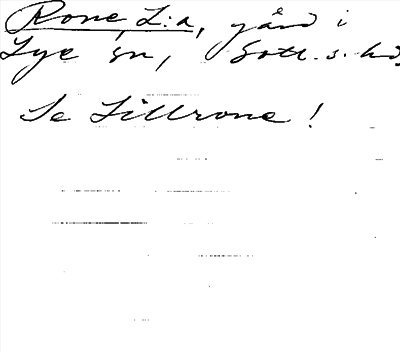 Rone L:a, gård i
Lye sn, Gotl. s. hd,
Se Lillrone!